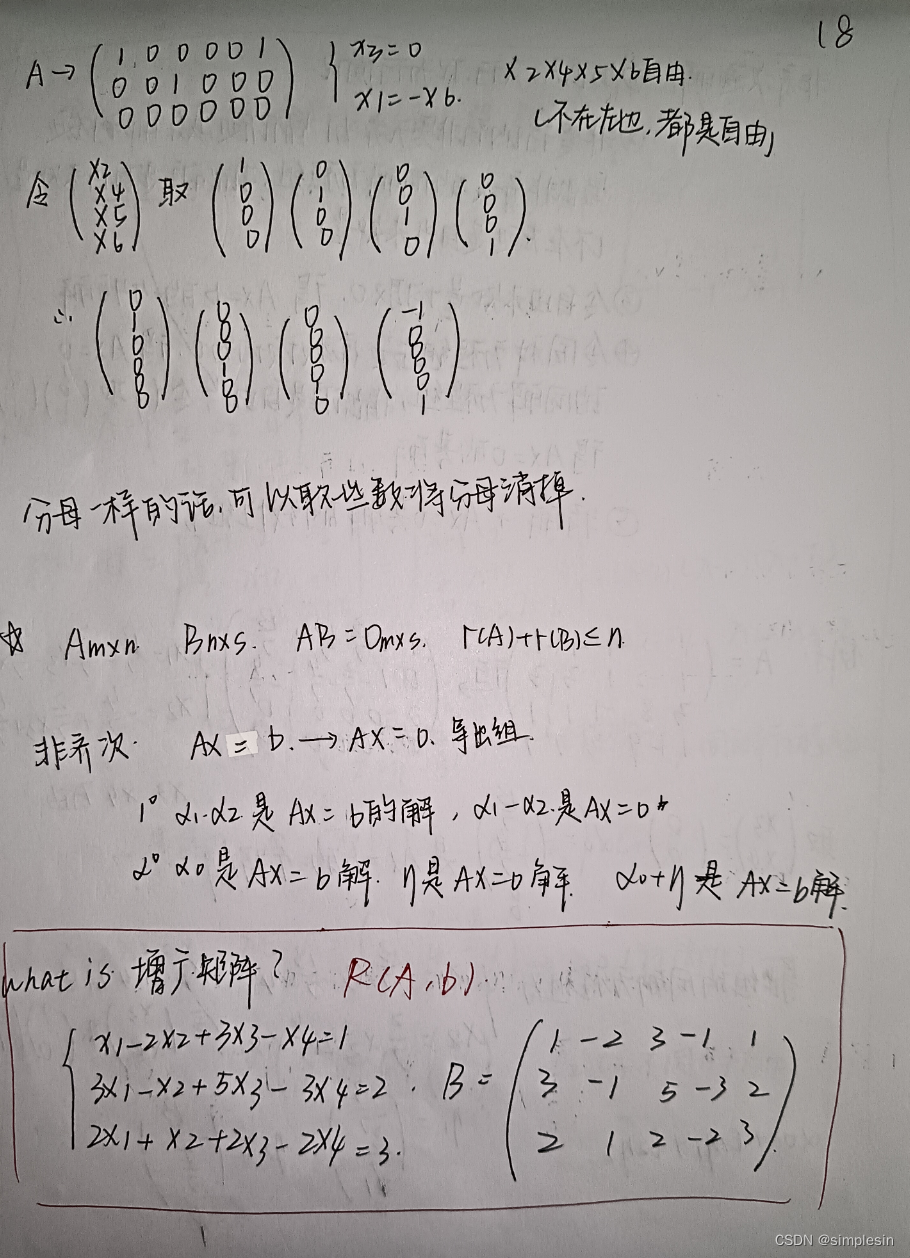 18
A→ ( 1 0 0 0 0 1 { x3=0
0 0 1 0 0 0 x1=-x6. x2x4x5x6自由.
0 0 0 0 0 0 ) (不在左边,都是自由)
令 (x2 x4 x5 x6) 取 (1 0 0 0) (0 1 0 0) (0 0 1 0) (0 0 0 1).
∴ (0 1 0 0 0) (0 0 0 1 0 0) (0 0 0 0 1 0) (-1 0 0 0 0 1)
分母一样的话,可以取一些数将分母消掉.
☆ Amxn Bnxs. AB=0mxs. r(A)+r(B)≤n.
非齐次. AX=b.→AX=0. 导出组.
1° α1.α2是AX=b的解,α1-α2.是AX=0
2° α0是AX=b解. η是AX=0解. α0+η是AX=b解.
what is 增广矩阵? R(A,b)
{ x1-2x2+3x3-x4=1 ( 1 -2 3 -1 1
3x1-x2+5x3-3x4=2. B= 3 -1 5 -3 2
2x1+x2+2x3-2x4=3. 2 1 2 -2 3 )
CSDN @simplesin